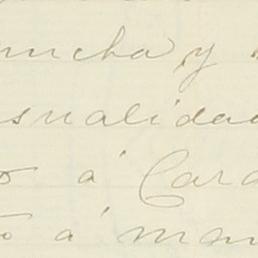 mucha y
sualidad
o á Car
to á man